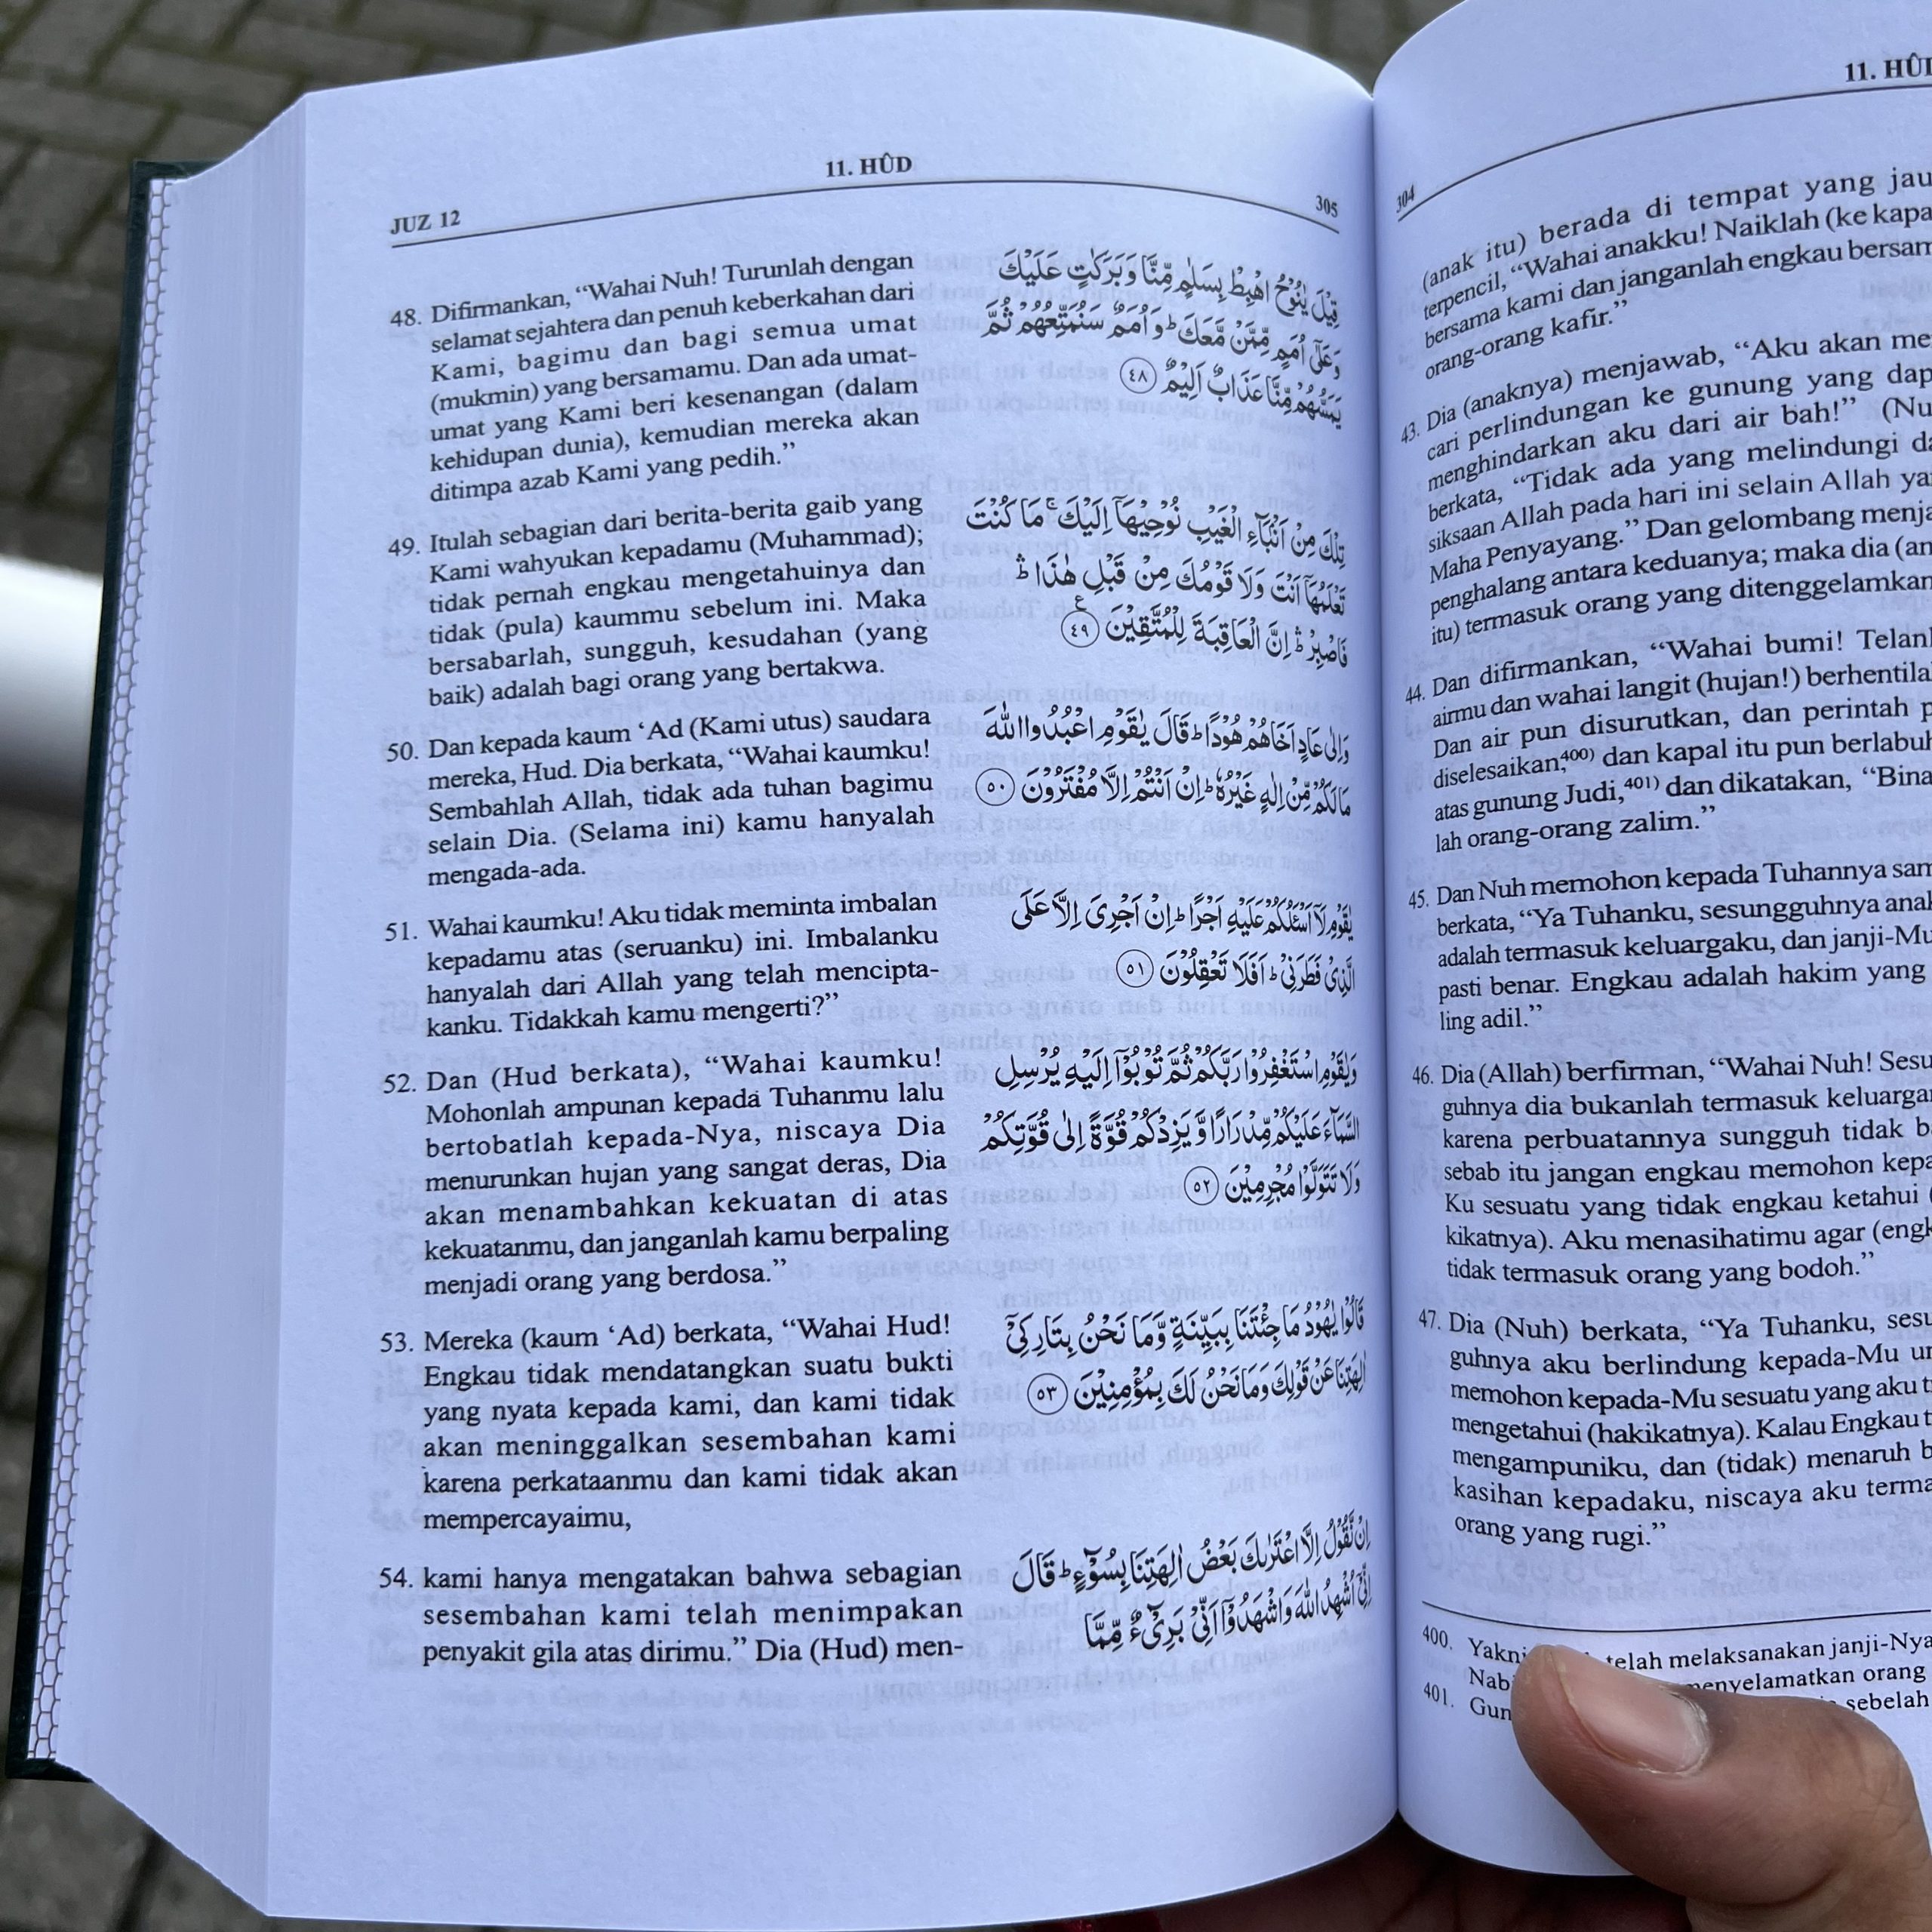 11. HÛD
JUZ 12
305
48. Difirmankan, “Wahai Nuh! Turunlah dengan
selamat sejahtera dan penuh keberkahan dari
Kami, bagimu dan bagi semua umat
(mukmin) yang bersamamu. Dan ada umat-
umat yang Kami beri kesenangan (dalam
kehidupan dunia), kemudian mereka akan
ditimpa azab Kami yang pedih.”
قِيْلَ يٰنُوْحُ اهْبِطْ بِسَلٰمٍ مِّنَّا وَبَرَكٰتٍ عَلَيْكَ
وَعَلٰٓى اُمَمٍ مِّمَّنْ مَّعَكَ ۗوَاُمَمٌ سَنُمَتِّعُهُمْ ثُمَّ
يَمَسُّهُمْ مِّنَّا عَذَابٌ اَلِيْمٌ ٤٨
49. Itulah sebagian dari berita-berita gaib yang
Kami wahyukan kepadamu (Muhammad);
tidak pernah engkau mengetahuinya dan
tidak (pula) kaummu sebelum ini. Maka
bersabarlah, sungguh, kesudahan (yang
baik) adalah bagi orang yang bertakwa.
تِلْكَ مِنْ اَنْۢبَاۤءِ الْغَيْبِ نُوْحِيْهَآ اِلَيْكَ ۚمَا كُنْتَ
تَعْلَمُهَآ اَنْتَ وَلَا قَوْمُكَ مِنْ قَبْلِ هٰذَا ۗ
فَاصْبِرْ ۗاِنَّ الْعَاقِبَةَ لِلْمُتَّقِيْنَ ࣖ ٤٩
50. Dan kepada kaum ‘Ad (Kami utus) saudara
mereka, Hud. Dia berkata, “Wahai kaumku!
Sembahlah Allah, tidak ada tuhan bagimu
selain Dia. (Selama ini) kamu hanyalah
mengada-ada.
وَاِلٰى عَادٍ اَخَاهُمْ هُوْدًا ۗقَالَ يٰقَوْمِ اعْبُدُوا اللّٰهَ
مَا لَكُمْ مِّنْ اِلٰهٍ غَيْرُهٗ ۗاِنْ اَنْتُمْ اِلَّا مُفْتَرُوْنَ ٥٠
51. Wahai kaumku! Aku tidak meminta imbalan
kepadamu atas (seruanku) ini. Imbalanku
hanyalah dari Allah yang telah mencipta-
kanku. Tidakkah kamu mengerti?”
يٰقَوْمِ لَآ اَسْـَٔلُكُمْ عَلَيْهِ اَجْرًا ۗاِنْ اَجْرِيَ اِلَّا عَلَى
الَّذِيْ فَطَرَنِيْ ۗاَفَلَا تَعْقِلُوْنَ ٥١
52. Dan (Hud berkata), “Wahai kaumku!
Mohonlah ampunan kepada Tuhanmu lalu
bertobatlah kepada-Nya, niscaya Dia
menurunkan hujan yang sangat deras, Dia
akan menambahkan kekuatan di atas
kekuatanmu, dan janganlah kamu berpaling
menjadi orang yang berdosa.”
وَيٰقَوْمِ اسْتَغْفِرُوْا رَبَّكُمْ ثُمَّ تُوْبُوْٓا اِلَيْهِ يُرْسِلِ
السَّمَاۤءَ عَلَيْكُمْ مِّدْرَارًا وَّيَزِدْكُمْ قُوَّةً اِلٰى قُوَّتِكُمْ
وَلَا تَتَوَلَّوْا مُجْرِمِيْنَ ٥٢
53. Mereka (kaum ‘Ad) berkata, “Wahai Hud!
Engkau tidak mendatangkan suatu bukti
yang nyata kepada kami, dan kami tidak
akan meninggalkan sesembahan kami
karena perkataanmu dan kami tidak akan
mempercayaimu,
قَالُوْا يٰهُوْدُ مَا جِئْتَنَا بِبَيِّنَةٍ وَّمَا نَحْنُ بِتَارِكِيْٓ
اٰلِهَتِنَا عَنْ قَوْلِكَ وَمَا نَحْنُ لَكَ بِمُؤْمِنِيْنَ ٥٣
54. kami hanya mengatakan bahwa sebagian
sesembahan kami telah menimpakan
penyakit gila atas dirimu.” Dia (Hud) men-
اِنْ نَّقُوْلُ اِلَّا اعْتَرٰىكَ بَعْضُ اٰلِهَتِنَا بِسُوْۤءٍ ۗقَالَ
اِنِّيْٓ اُشْهِدُ اللّٰهَ وَاشْهَدُوْٓا اَنِّيْ بَرِيْۤءٌ مِّمَّا
11. HÛ
304
(anak itu) berada di tempat yang jau
terpencil, “Wahai anakku! Naiklah (ke kapa
bersama kami dan janganlah engkau bersam
orang-orang kafir.”
43. Dia (anaknya) menjawab, “Aku akan me
cari perlindungan ke gunung yang dap
menghindarkan aku dari air bah!” (Nu
berkata, “Tidak ada yang melindungi da
siksaan Allah pada hari ini selain Allah ya
Maha Penyayang.” Dan gelombang menja
penghalang antara keduanya; maka dia (an
itu) termasuk orang yang ditenggelamkan
44. Dan difirmankan, “Wahai bumi! Telan
airmu dan wahai langit (hujan!) berhentila
Dan air pun disurutkan, dan perintah p
diselesaikan,400) dan kapal itu pun berlabuh
atas gunung Judi,401) dan dikatakan, “Bina
lah orang-orang zalim.”
45. Dan Nuh memohon kepada Tuhannya sam
berkata, “Ya Tuhanku, sesungguhnya anak
adalah termasuk keluargaku, dan janji-Mu
pasti benar. Engkau adalah hakim yang
ling adil.”
46. Dia (Allah) berfirman, “Wahai Nuh! Sesu
guhnya dia bukanlah termasuk keluargam
karena perbuatannya sungguh tidak b
sebab itu jangan engkau memohon kepa
Ku sesuatu yang tidak engkau ketahui (
kikatnya). Aku menasihatimu agar (engk
tidak termasuk orang yang bodoh.”
47. Dia (Nuh) berkata, “Ya Tuhanku, sesu
guhnya aku berlindung kepada-Mu un
memohon kepada-Mu sesuatu yang aku t
mengetahui (hakikatnya). Kalau Engkau t
mengampuniku, dan (tidak) menaruh b
kasihan kepadaku, niscaya aku terma
orang yang rugi.”
400. Yakni telah melaksanakan janji-Nya
Nab menyelamatkan orang
401. Gun sebelah